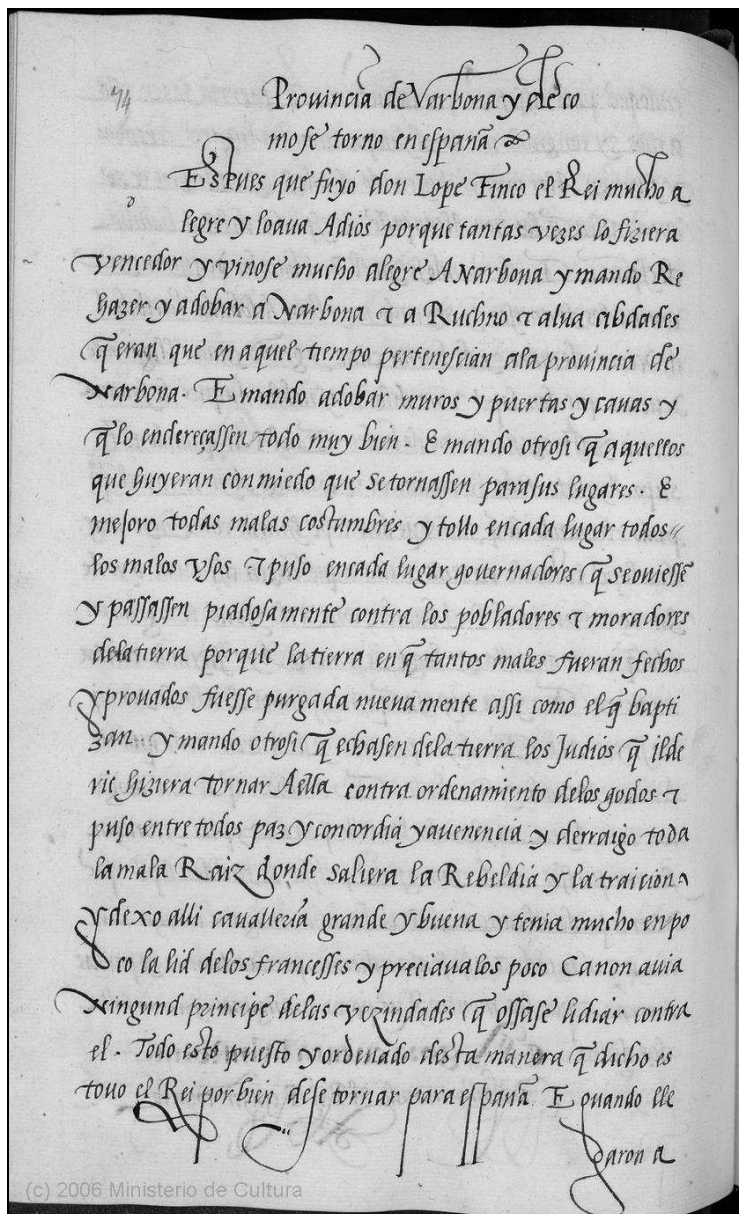 74
Provincia de Narbona y de co
mo se torno en españa
Espues que fuyó don Lope Finco el Rei mucho a
legre y loava Adios porque tantas vezes lo fiziera
vencedor y vinose mucho alegre A Narbona y mando Re
hazer y adobar a Narbona τ a Ruchno τ alva cibdades
q̃ eran que en aquel tiempo pertenescian ala provincia de
Narbona. E mando adobar muros y puertas y cavas y
q̃ lo endereçassen todo muy bien. E mando otrosi q̃ aquellos
que huyeran con miedo que se tornassen parasus lugares. E
mejoro todas malas costumbres y tollo encada lugar todos
los malos vsos τ puso encada lugar governadores q̃ se oviesse
y passassen piadosamente contra los pobladores τ moradores
dela tierra porque la tierra en q̃ tantos males fueran fechos
y provados fuesse purgada nuevamente assi como el q̃ bapti
zan. y mando otrosi q̃ echasen dela tierra los Judios q̃ ilde
ric hiziera tornar Aella contra ordenamiento delos godos τ
puso entre todos paz y concordia y avenencia y derraigo toda
la mala Raiz donde saliera la Rebeldia y la traicion
y dexo alli cavalleria grande y buena y tenia mucho en po
co la lid delos francesses y preciavalos poco Canon avia
Ningund principe delas vezindades q̃ ossase lidiar contra
el. Todo esto puesto y ordenado desta manera q̃ dicho es
tovo el Rei por bien dese tornar para españa E quando lle
garon a
(c) 2006 Ministerio de Cultura